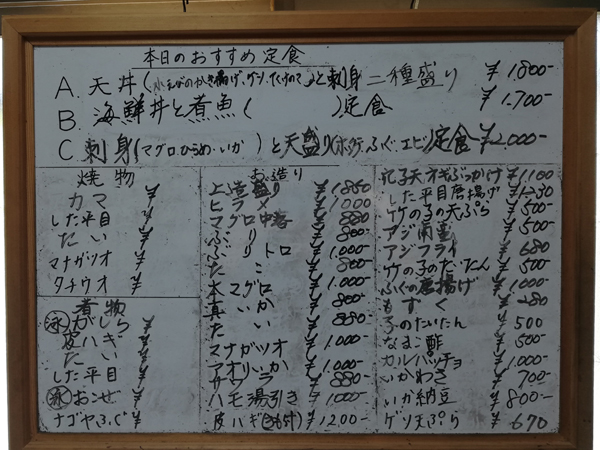 本日のおすすめ定食
A. 天丼(小えびのかき揚げ、ゲソ、たけのこ)と刺身二種盛り ¥1.800-
B. 海鮮丼と煮魚( )定食 ¥1.700-
C. 刺身(マグロ・ひらめ・いか)と天盛り(ホタテ、ふぐ、エビ)定食 ¥2,000-
焼物
カマ ¥
した平目 ¥
だい ¥
マナガツオ ¥
タチウオ ¥
煮物
がしら ¥
皮ハギ ¥
だい ¥
した平目 ¥
おこぜ ¥
ナゴヤふぐ ¥
お造り
上造盛り ¥1.850
ヒラメ ¥1.000
マグロ中落 ¥880
ぶり ¥800-
ぶりトロ ¥1.000-
たこ ¥800-
本マグロ ¥1.000-
真いか ¥800-
だい ¥880-
マナガツオ ¥1.000-
アオリいか ¥1.000-
サワラ ¥880-
ハモ湯引き ¥1000-
皮ハギ(きも付) ¥1200-
¥1,100
した平目唐揚げ
竹の子の天ぷら ¥500-
アジ ¥500-
アジフライ ¥680
竹の子のたいたん ¥500-
ふぐの唐揚げ ¥1.000-
もずく ¥280
子のたいたん 500
なまこ酢 ¥500-
カルパッチョ ¥1.000-
いかわさ ¥700-
いか納豆 ¥800-
ゲソ天ぷら ¥670